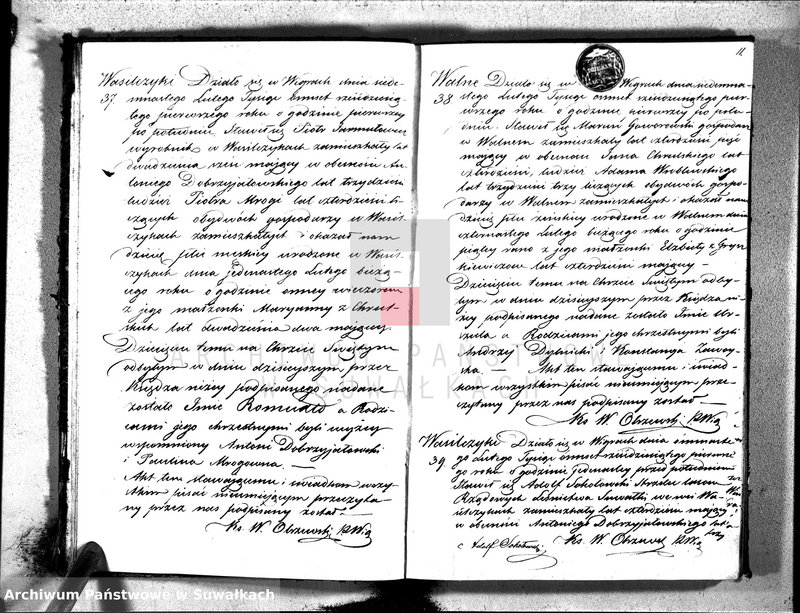 Wasilczyki Działo się w Wigrach dnia siede-
37. mnastego Lutego Tysiąc ośmset sześdziesią-
tego pierwszego roku o godzinie pierwszej
po południu. Stawił się Piotr
wyrobnik w Wasilczykach zamieszkały lat
dwadzieścia sześć mający w obecności An-
toniego Dobrzyjałowskiego lat trzydzieści
tudzież Piotra Mrogi lat czterdzieści li-
czących obydwóch gospodarzy w Wasil-
czykach zamieszkałych i okazał nam
dziecię płci męskiej urodzone w Wasil-
czykach dnia jedenastego Lutego bieżą-
cego roku o godzinie ósmej wieczorem
z jego małżonki Maryanny z
lat dwadzieścia dwa mającej
Dziecięciu temu na Chrzcie Świętym
odbytym w dniu dzisiejszym przez
Księdza niżej podpisanego nadane
zostało Imie Romuald a Rodzi-
cami jego chrzestnymi byli wyżej
wspomniony Antoni Dobrzyjałowski
i Paulina Mrogowna. —
Akt ten stawającemu i świadkom wszy-
stkim pisać nieumiejącym przeczyta-
ny przez nas podpisany został —
Ks. W. Olszewski
11
Walne Działo się w Wigrach dnia siedmna-
38 stego Lutego Tysiąc ośmset sześdziesiątego pier-
wszego roku o godzinie pierwszej po połu-
dniu. Stawił się Marcin Jaworowski gospodarz
w Walnem zamieszkały lat czterdzieści pięć
mający w obecności Jana Chmielskiego lat
czterdzieści, tudzież Adama Wróblewskiego
lat trzydzieści trzy liczących obydwóch gospo-
darzy w Walnem zamieszkałych i okazał nam
dziecię płci żeńskiej urodzone w Walnem dnia
czternastego Lutego bieżącego roku o godzinie
piątej rano z jego małżonki Elżbiety z
lat czterdzieści mającej —
Dziecięciu temu na Chrzcie Świętym odby-
tym w dniu dzisiejszym przez Księdza ni-
żej podpisanego nadane zostało Imie Ur-
szula a Rodzicami jego chrzestnymi byli
Andrzej i Konstancya
— Akt ten stawającemu i świad-
kom wszystkim pisać nieumiejącym prze-
czytany przez nas podpisany został —
Ks. W. Olszewski
Wasilczyki Działo się w Wigrach dnia
39. go Lutego Tysiąc ośmset sześdziesiątego pierwsze-
go roku o godzinie jedenastej przed południem
Stawił się Adolf Sokołowski Strzelec Lasów
Rządowych Leśnictwa Suwałki we wsi Wa-
silczykach zamieszkały lat czterdzieści mający
w obecności Antoniego Dobrzyjałowskiego lat
Adolf Sokołowski Ks. W. Olszewski
ARCHIWUM PAŃSTWOWE
W SUWAŁKACH
Archiwum Państwowe w Suwałkach